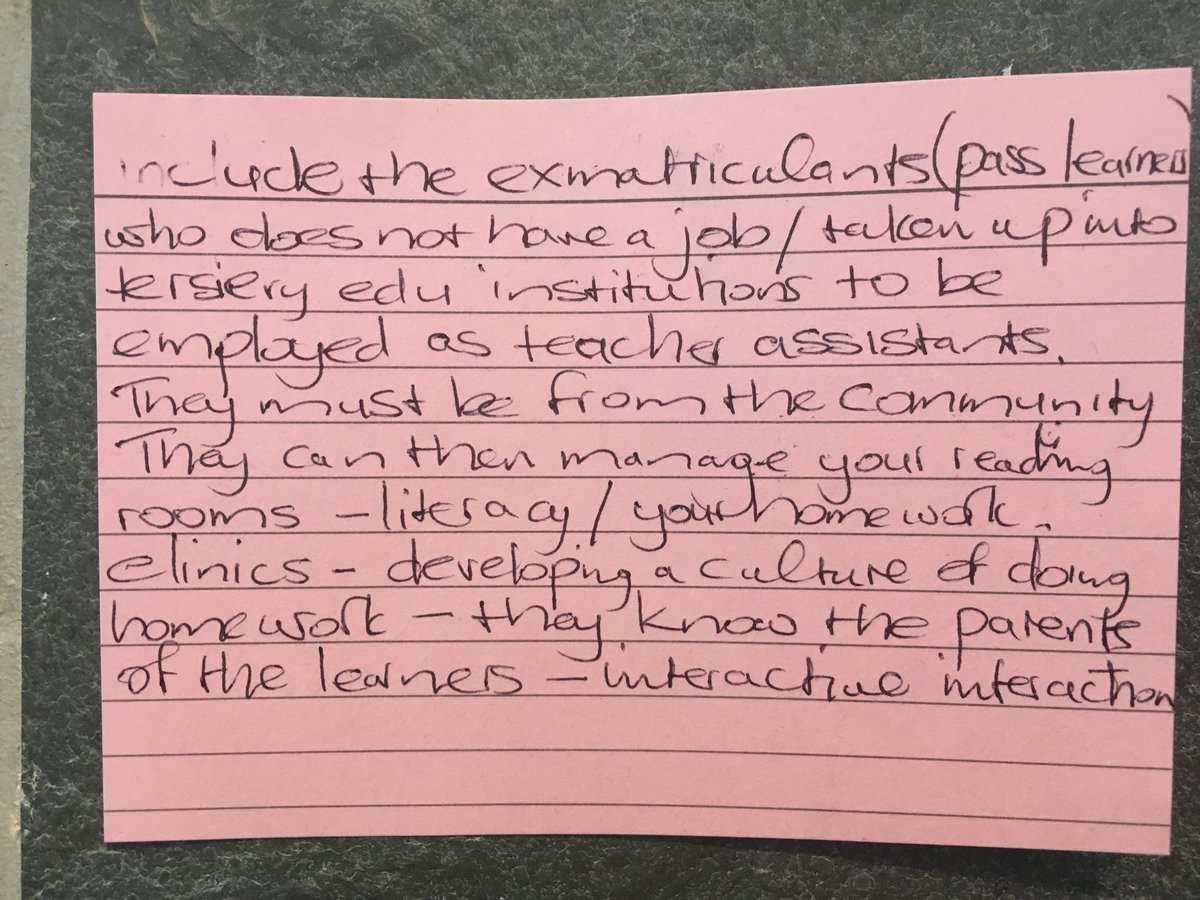 include the exmatriculants (pass learners)
who does not have a job / taken up into
tersiery edu institutions to be
employed as teacher assistants.
They must be from the community
They can then manage your reading
rooms - literacy / your homework.
clinics - developing a culture of doing
homework - they know the parents
of the learners - interactive interaction